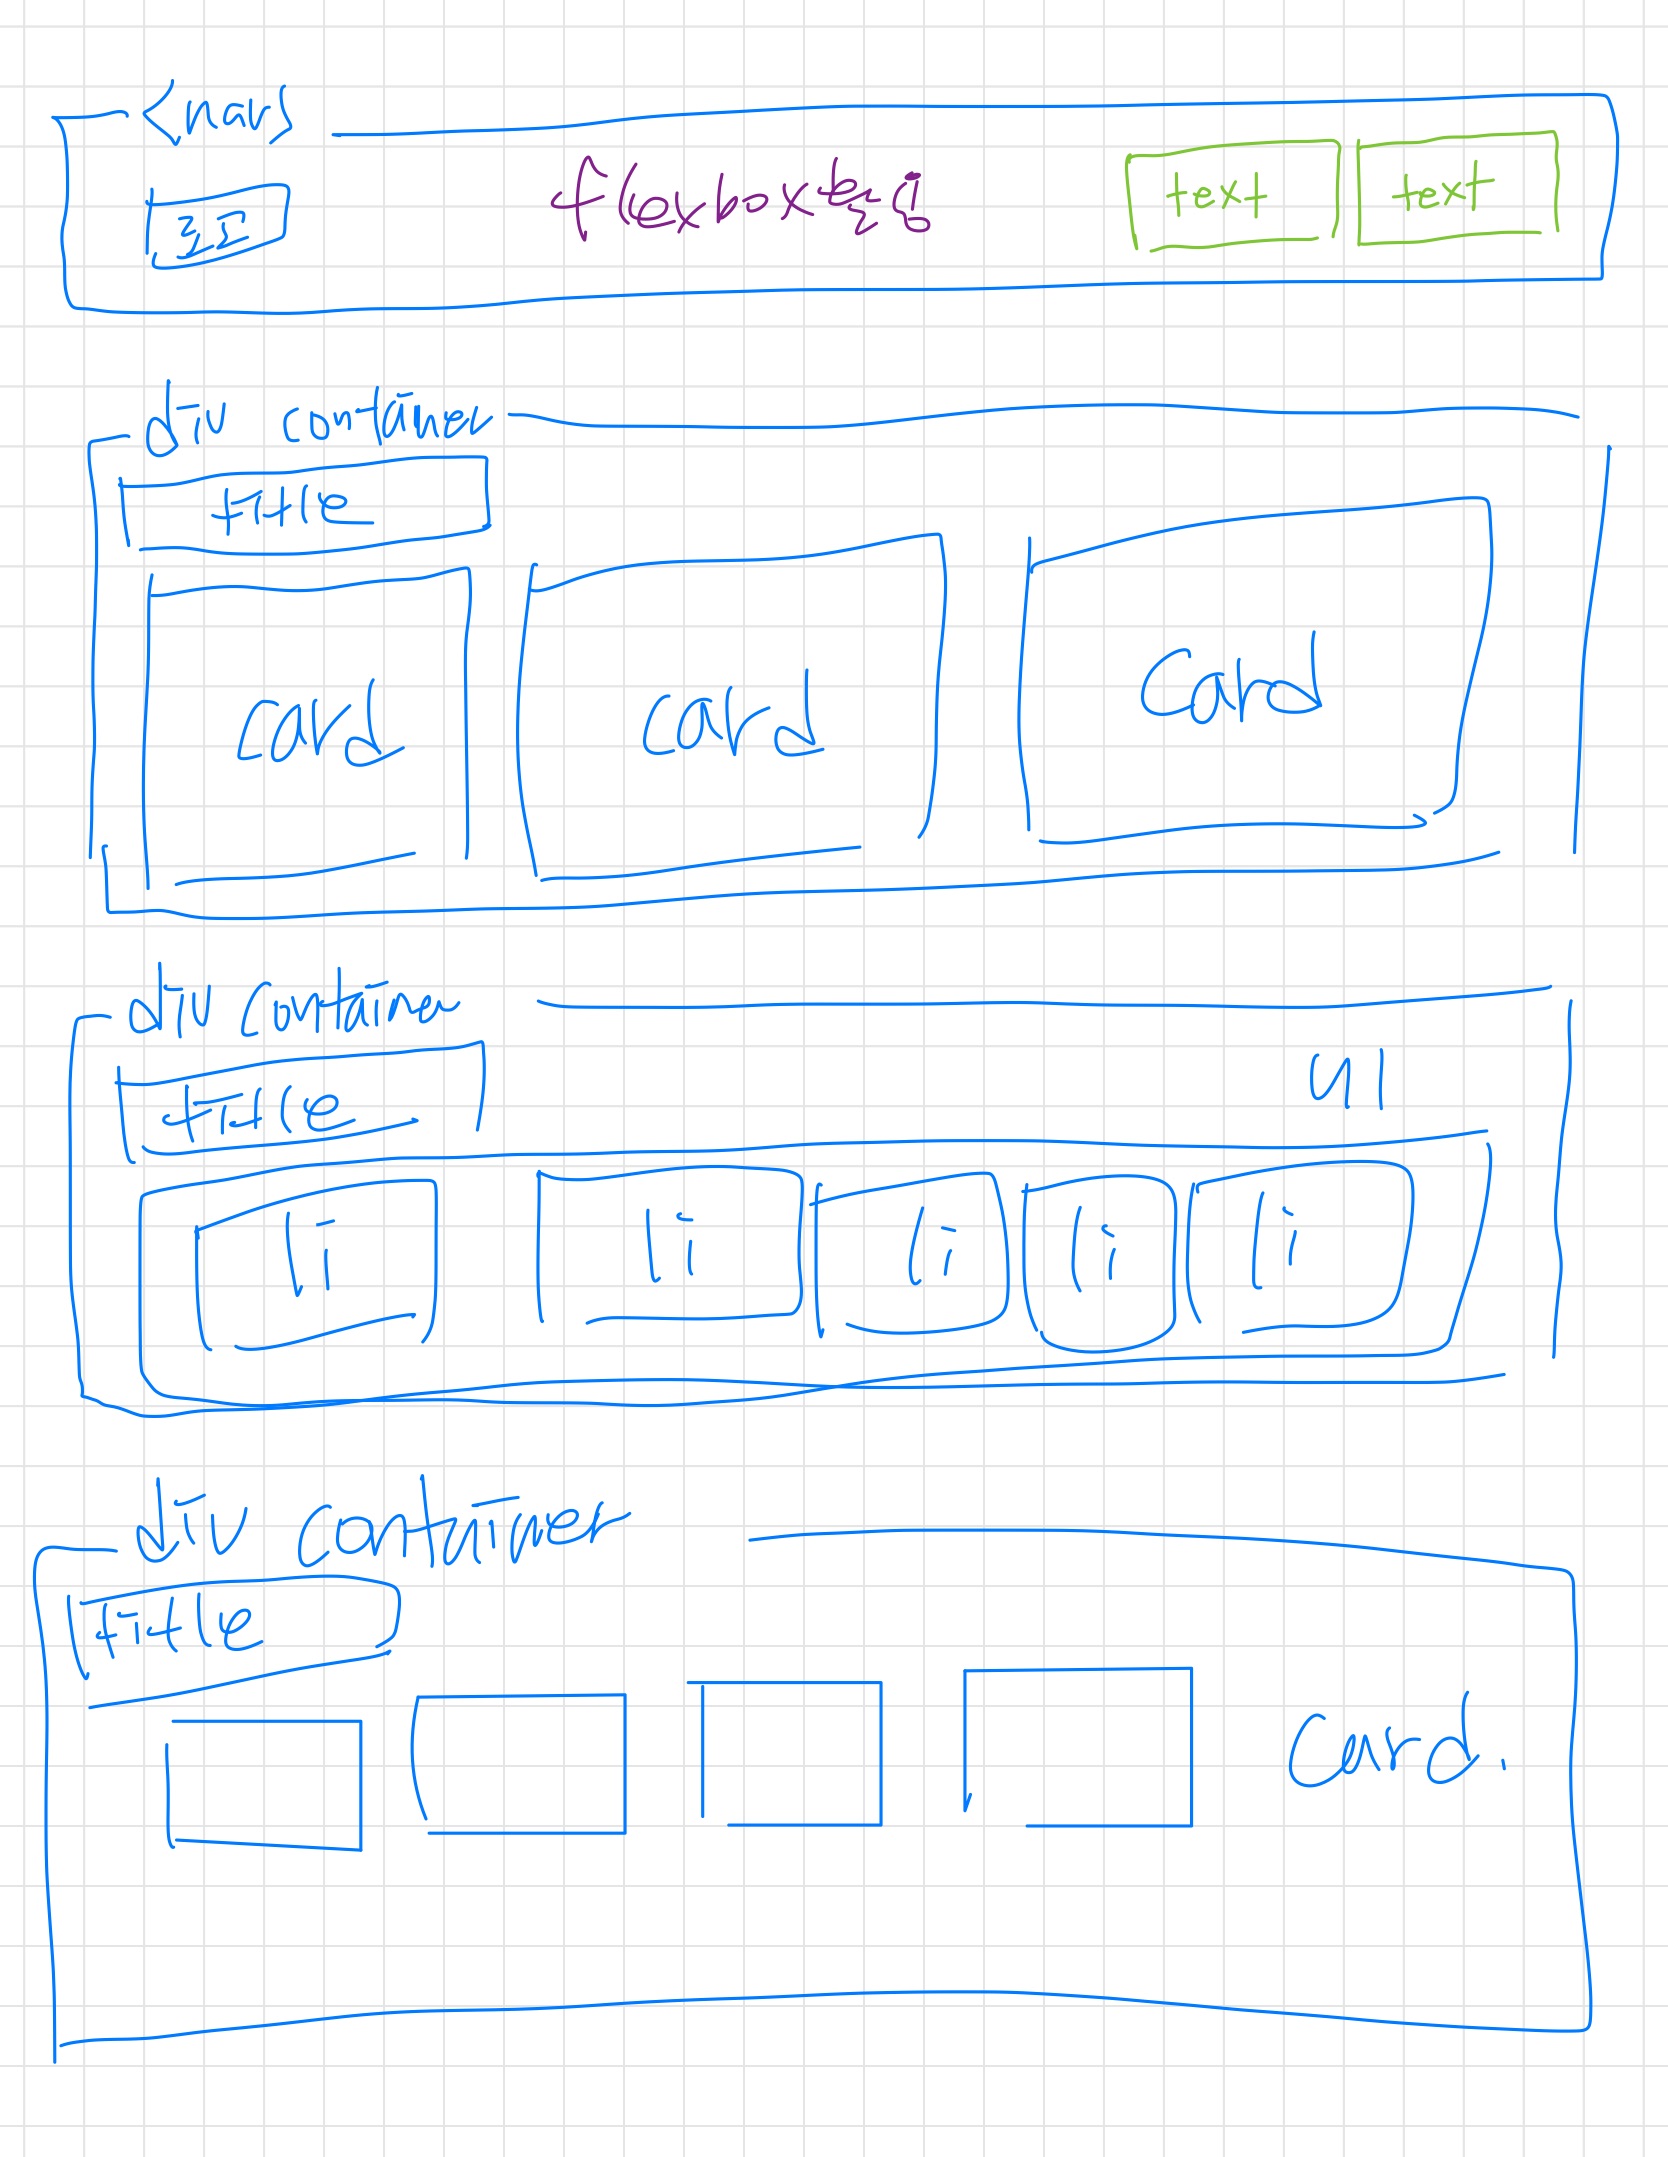 <nav>
로고
flexbox 특징
text
text
div container
title
card
card
card
div container
title
ul
li
li
li
li
li
div container
title
card.